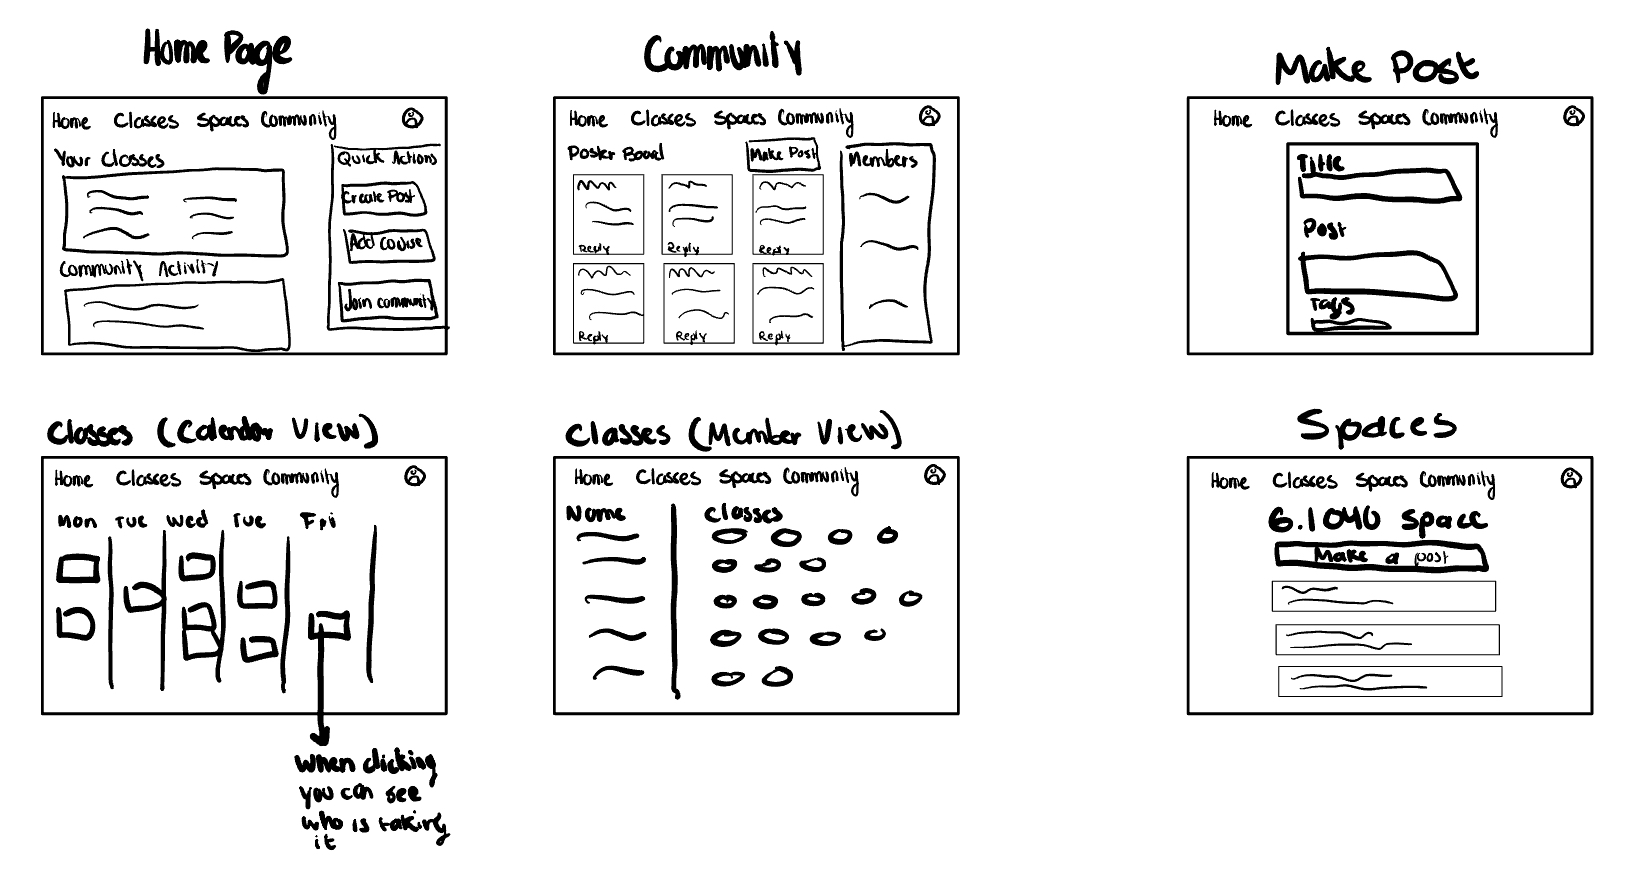 Home Page
Home Classes Spaces Community
Your Classes
Community Activity
Quick Actions
Create Post
Add course
Join community
Community
Home Classes Spaces Community
Poster Board
Make Post
Members
Reply
Reply
Reply
Reply
Reply
Reply
Make Post
Home Classes Spaces Community
Title
Post
Tags
Classes (Calendar View)
Home Classes Spaces Community
Mon Tue Wed Tue Fri
When clicking
you can see
who is taking
it
Classes (Member View)
Home Classes Spaces Community
Name Classes
Spaces
Home Classes Spaces Community
6.1040 Space
Make a post